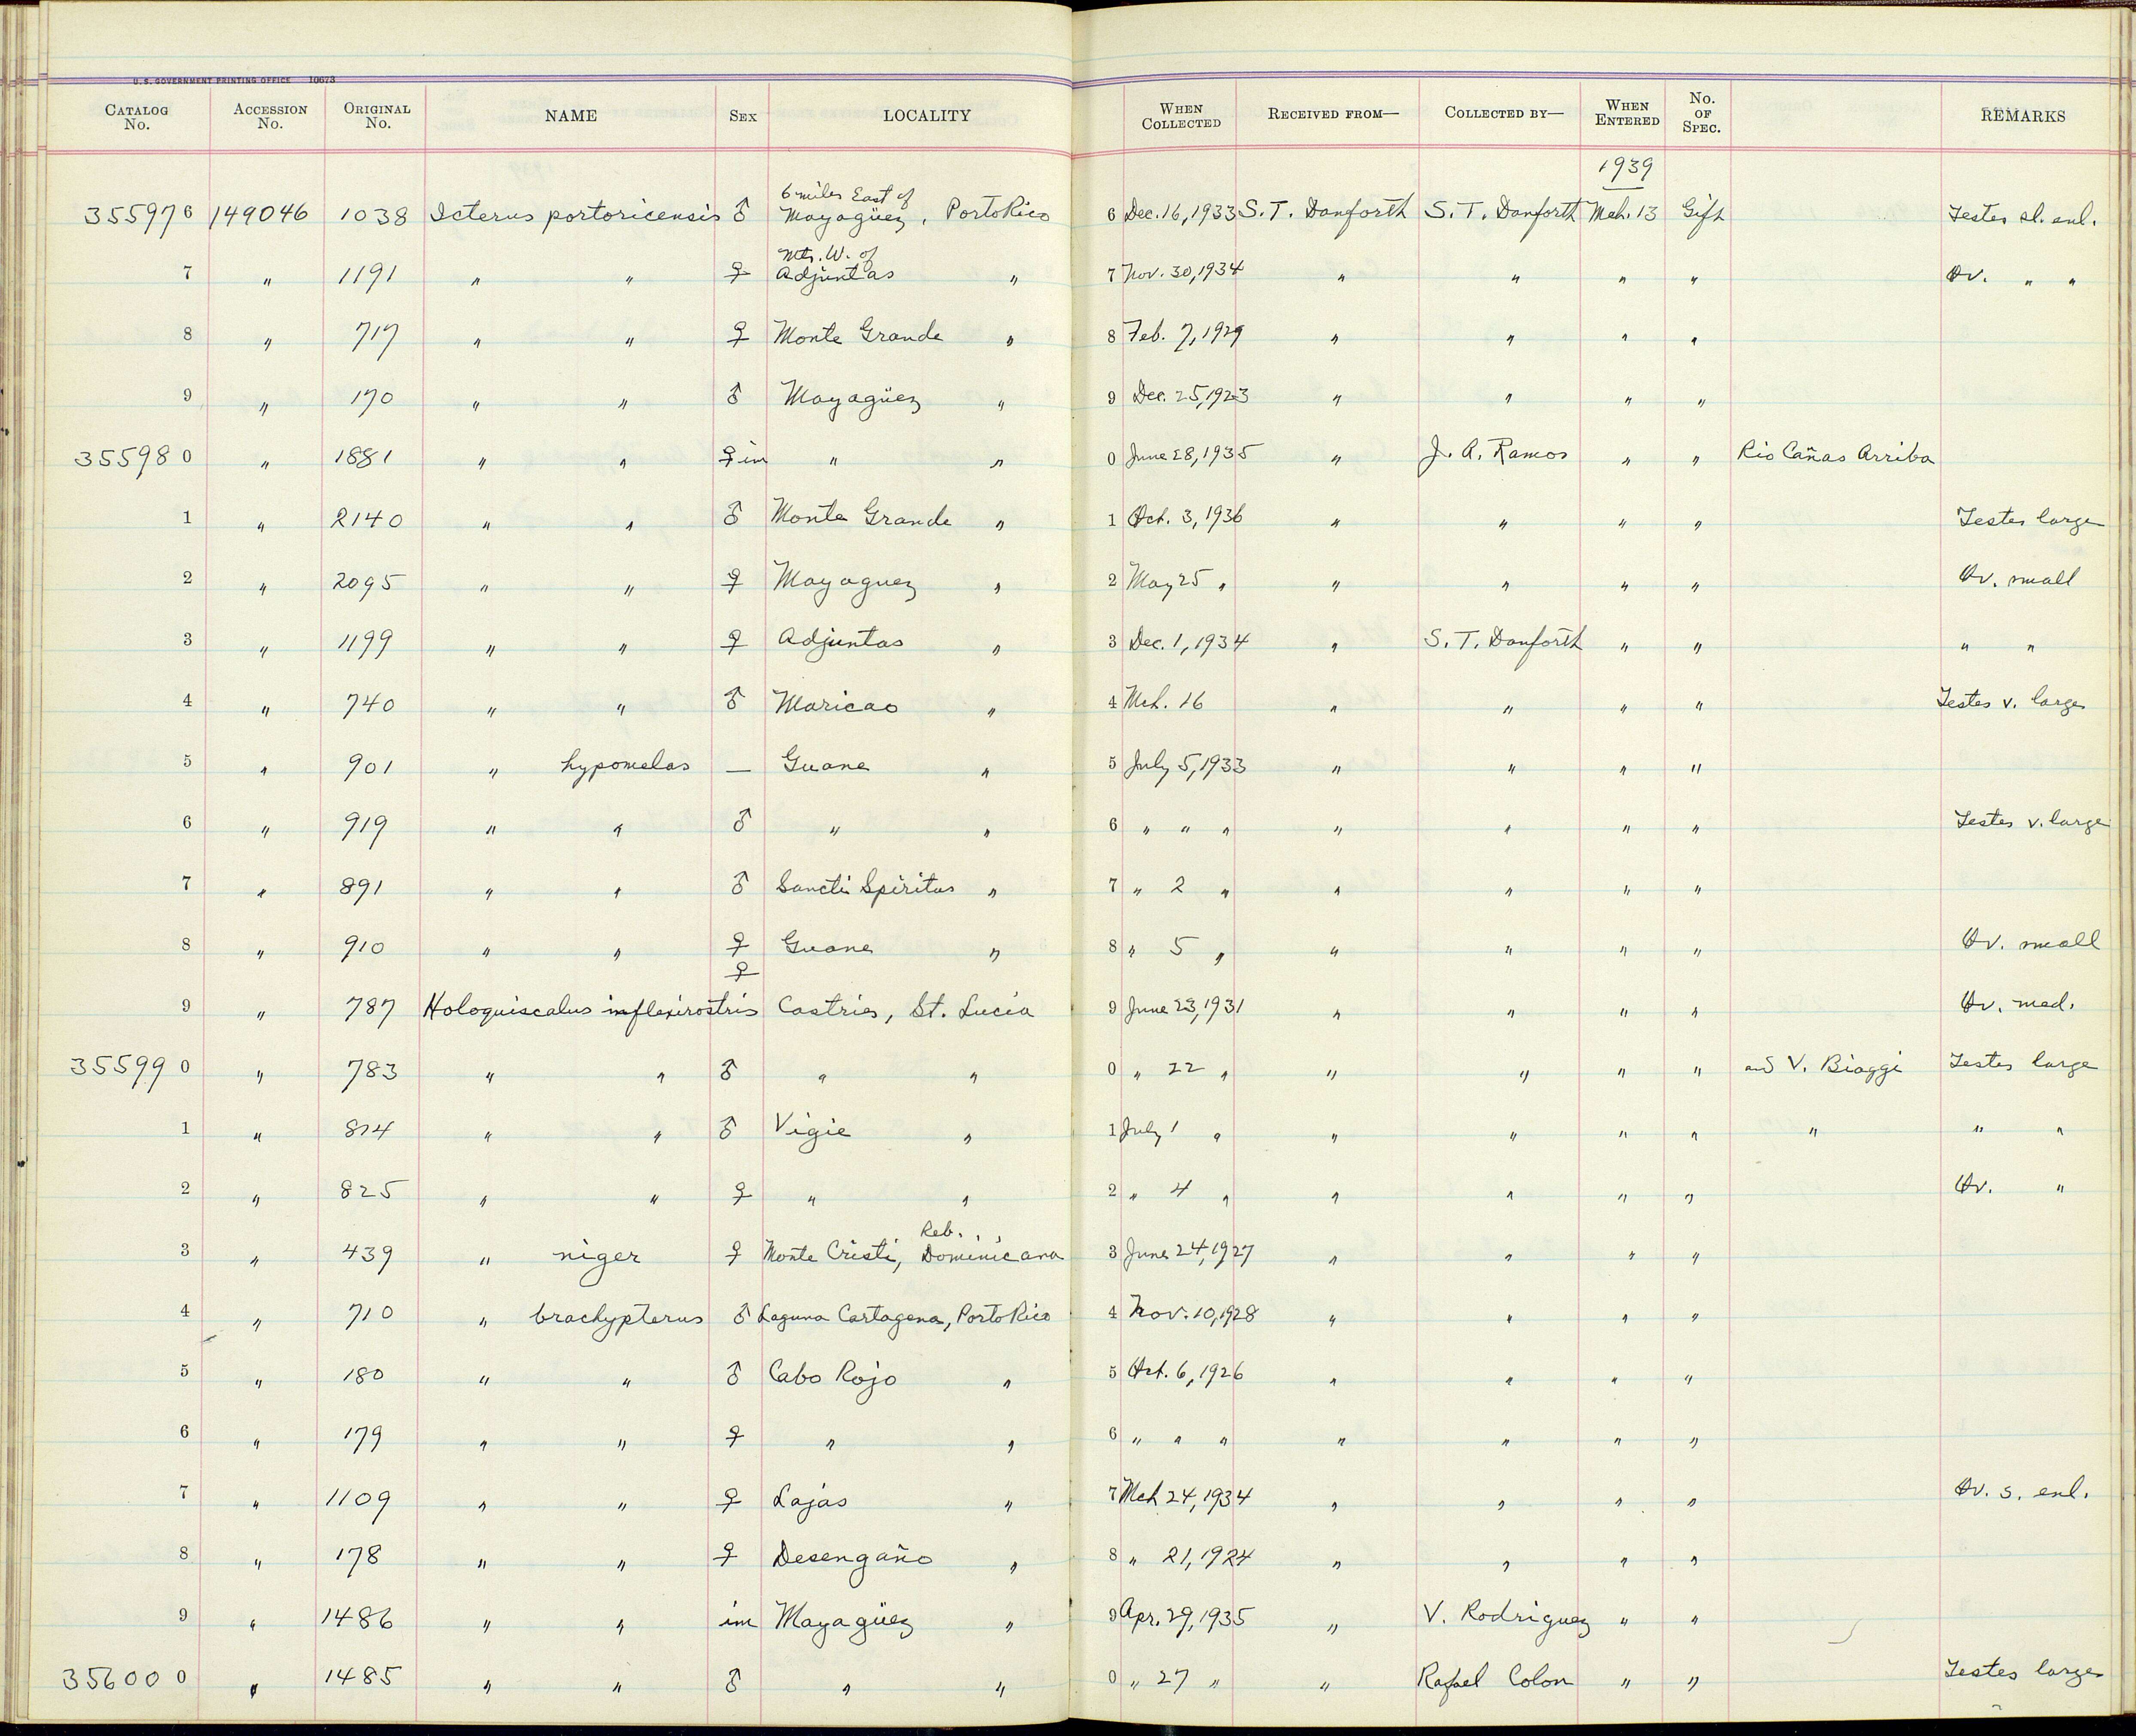 U. S. GOVERNMENT PRINTING OFFICE 10673
CATALOG No. ACCESSION No. ORIGINAL No. NAME SEX LOCALITY WHEN COLLECTED RECEIVED FROM— COLLECTED BY— WHEN ENTERED No. OF SPEC. REMARKS
1939
355976 149046 1038 Icterus portoricensis ♂ 6 miles East of Mayagüez, Porto Rico 6 Dec. 16, 1933 S. T. Danforth S. T. Danforth Mch. 13 Gift Testes sl. enl.
7 " 1191 " " ♀ Mts. W. of Adjuntas " 7 Nov. 30, 1934 " " " " Ov. " "
8 " 717 " " ♀ Monte Grande " 8 Feb. 7, 1929 " " " "
9 " 170 " " ♂ Mayagüez " 9 Dec. 25, 1923 " " " "
355980 " 1881 " " ♀ im " " 0 June 28, 1935 " J. A. Ramos " " Rio Cañas Arriba
1 " 2140 " " ♂ Monte Grande " 1 Oct. 3, 1936 " " " " Testes large
2 " 2095 " " ♀ Mayaguez " 2 May 25 " " " " " Ov. small
3 " 1199 " " ♀ Adjuntas " 3 Dec. 1, 1934 " S. T. Danforth " " " "
4 " 740 " " ♂ Maricao " 4 Mch. 16 " " " " Testes v. large
5 " 901 " hypomelas — Guane " 5 July 5, 1933 " " " "
6 " 919 " " ♂ " " 6 " " " " " " " Testes v. large
7 " 891 " " ♂ Sancti Spiritus " 7 " 2 " " " " "
8 " 910 " " ♀ Guane " 8 " 5 " " " " " Ov. small
9 " 787 Holoquiscalus inflexirostris ♀ Castries, St. Lucia 9 June 23, 1931 " " " " Ov. med.
355990 " 783 " " ♂ " " 0 " 22 " " " " " and V. Biaggi Testes large
1 " 814 " " ♂ Vigie " 1 July 1 " " " " " " " "
2 " 825 " " ♀ " " 2 " 4 " " " " " Ov. "
3 " 439 " niger ♀ Monte Cristi, Reb. Dominicana 3 June 24, 1927 " " " "
4 " 710 " brachypterus ♂ Laguna Cartagena, Porto Rico 4 Nov. 10, 1928 " " " "
5 " 180 " " ♂ Cabo Rojo " 5 Oct. 6, 1926 " " " "
6 " 179 " " ♀ " " 6 " " " " " " "
7 " 1109 " " ♀ Lajas " 7 Mch 24, 1934 " " " " Ov. s. enl.
8 " 178 " " ♀ Desengaño " 8 " 21, 1924 " " " "
9 " 1486 " " im Mayagüez " 9 Apr. 29, 1935 " V. Rodriguez " "
356000 " 1485 " " ♂ " " 0 " 27 " " Rafael Colon " " Testes large